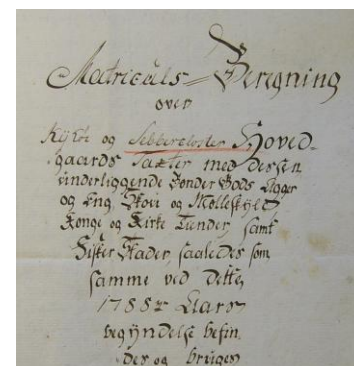 Matriculs Beregning
over
og Sebberkloster Hoved-
gaards Taxter med dessen
underliggende Bønder Gods Agger
og Eng, Skov og Mølleskyld
Konge og Kirke Tiender, samt
Fisker Stader, saaledes som
samme ved dette,
Aars
begyndelse befin,
des og brugen